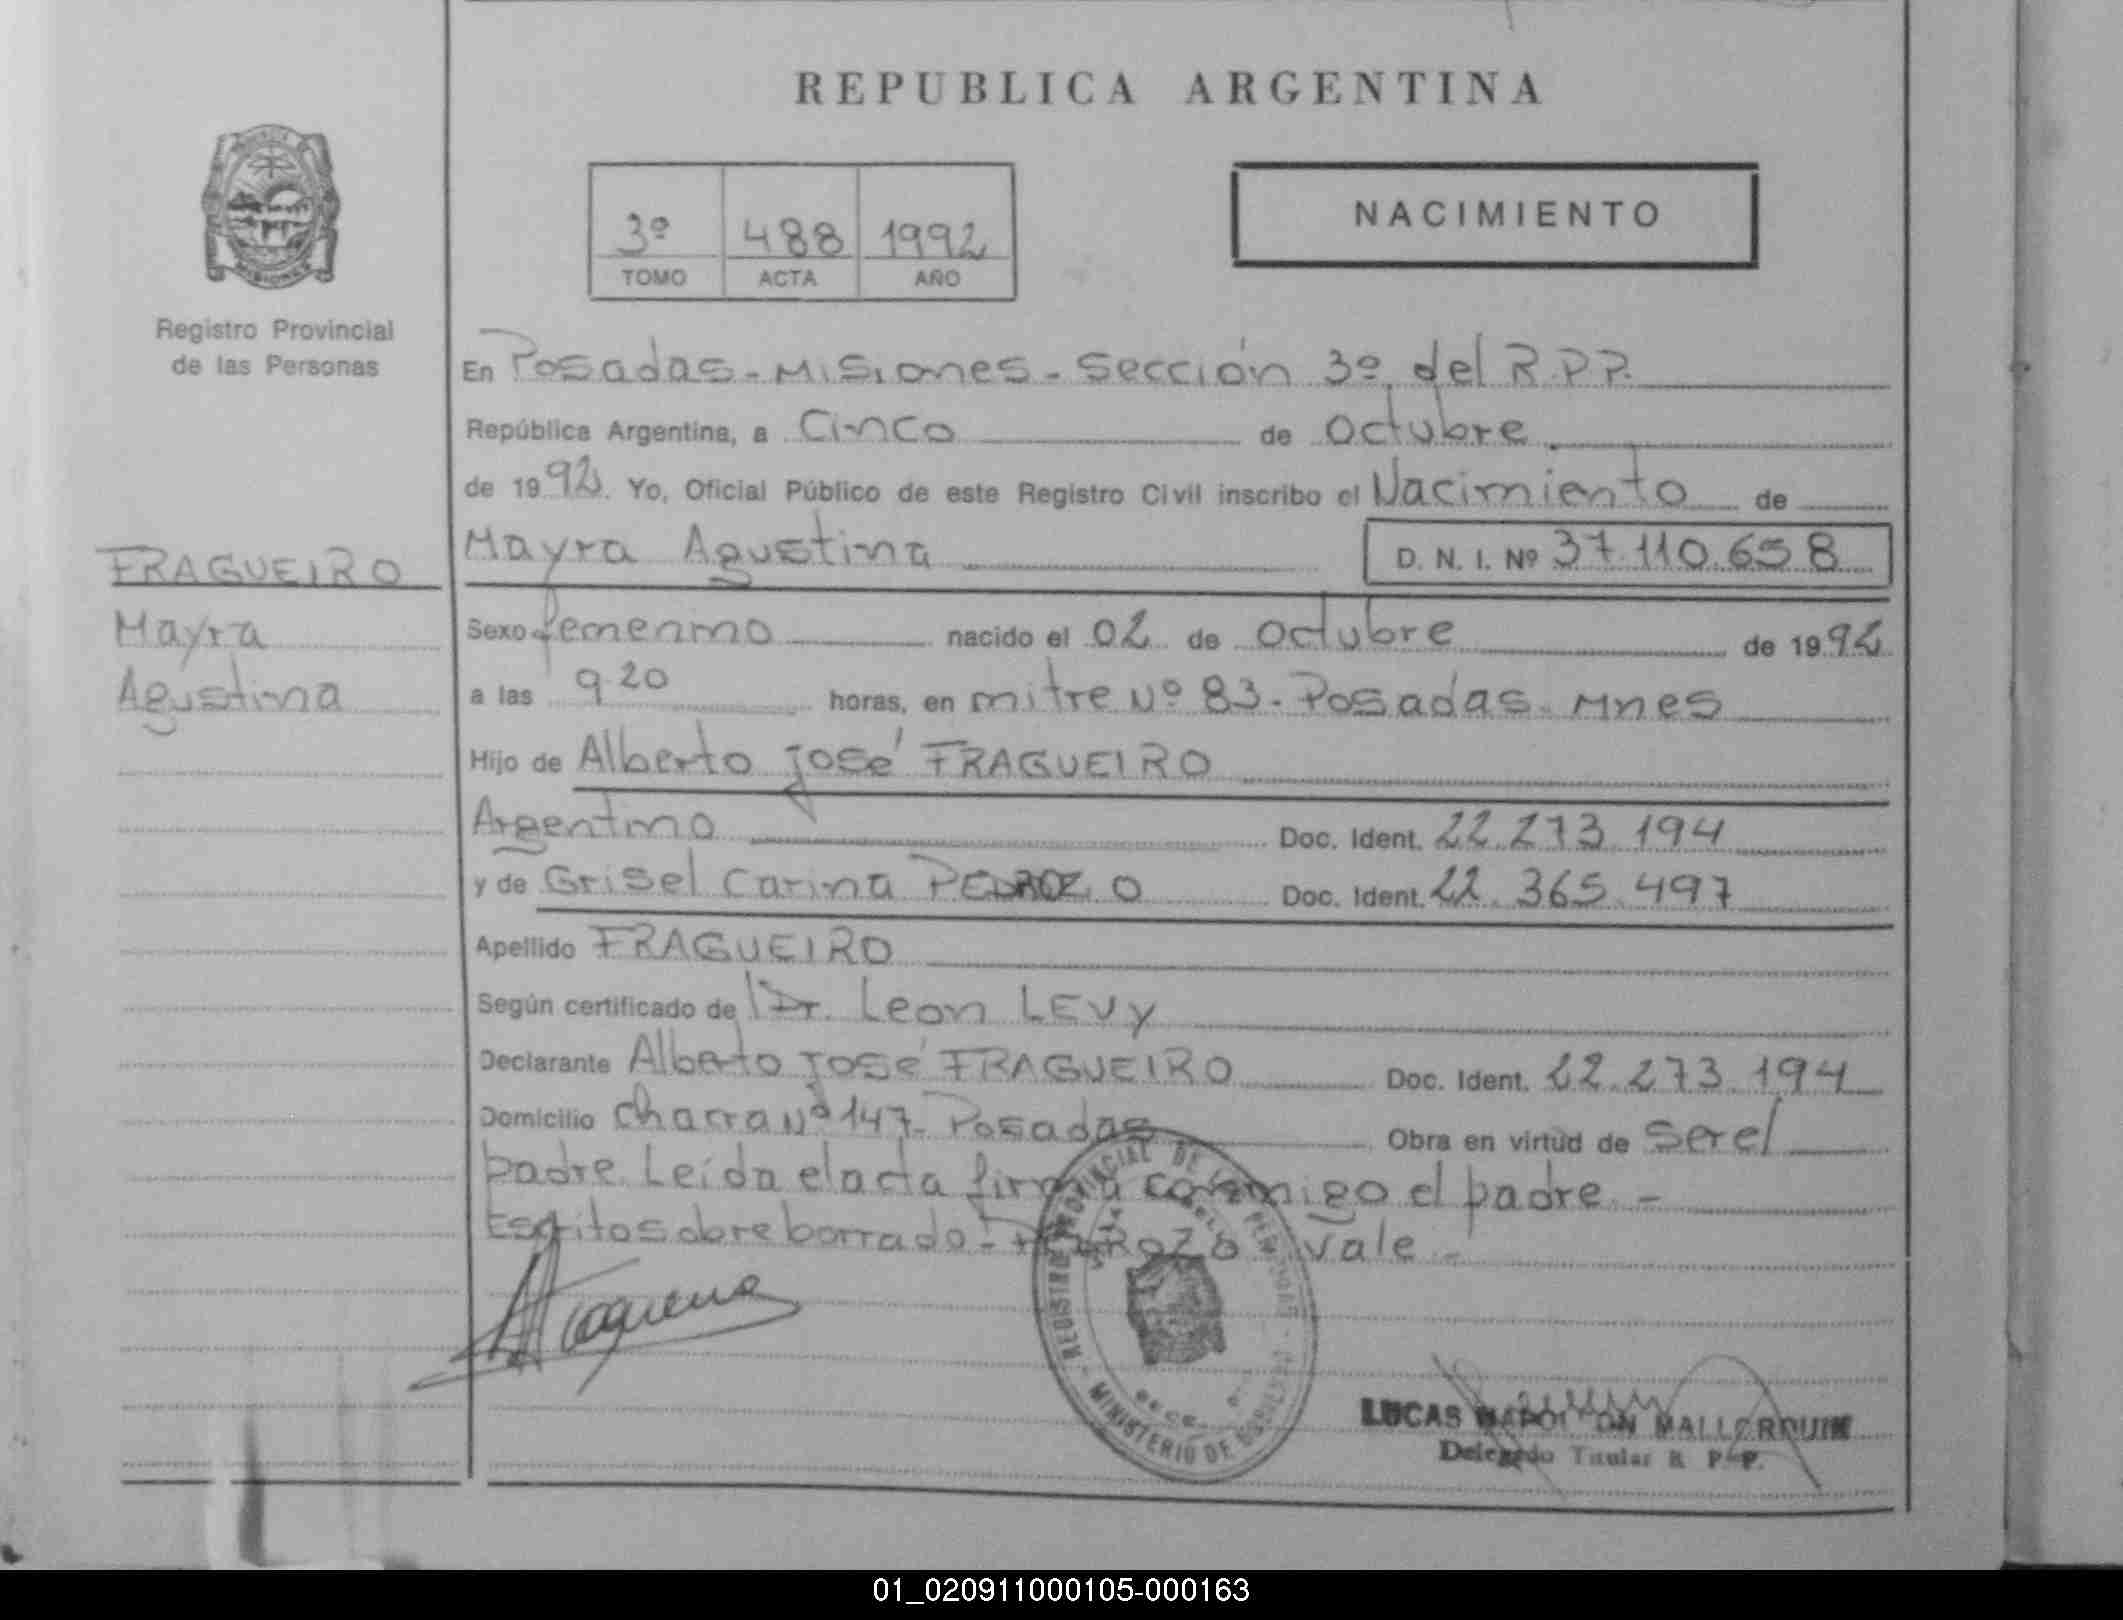 REPUBLICA ARGENTINA
MISIONES
Registro Provincial
de las Personas
3º 488 1992
TOMO ACTA AÑO
NACIMIENTO
En Posadas - Misiones - Sección 3º del R.P.P.
República Argentina, a Cinco de octubre
de 1992. Yo, Oficial Público de este Registro Civil inscribo el Nacimiento de
Mayra Agustina D. N. I. Nº 37.110.658
FRAGUEIRO
Mayra
Agustina
Sexo femenino nacido el 02 de octubre de 1992
a las 9.20 horas, en mitre Nº 83 - Posadas - Mnes
Hijo de Alberto José FRAGUEIRO
Argentino Doc. Ident. 22.273.194
y de Grisel Carina PEDROZO Doc. Ident. 22.365.497
Apellido FRAGUEIRO
Según certificado de Dr. Leon LEVY
Declarante Alberto José FRAGUEIRO Doc. Ident. 22.273.194
Domicilio Chacra Nº 147 - Posadas Obra en virtud de ser el
padre. Leída el acta firma conmigo el padre. -
Escrito sobre borrado - PEDROZO Vale -
REGISTRO PROVINCIAL DE LAS PERSONAS
MINISTERIO DE GOBIERNO
LUCAS NAPOLEON MALLORQUIN
Delegado Titular R. P. P.
01_020911000105-000163